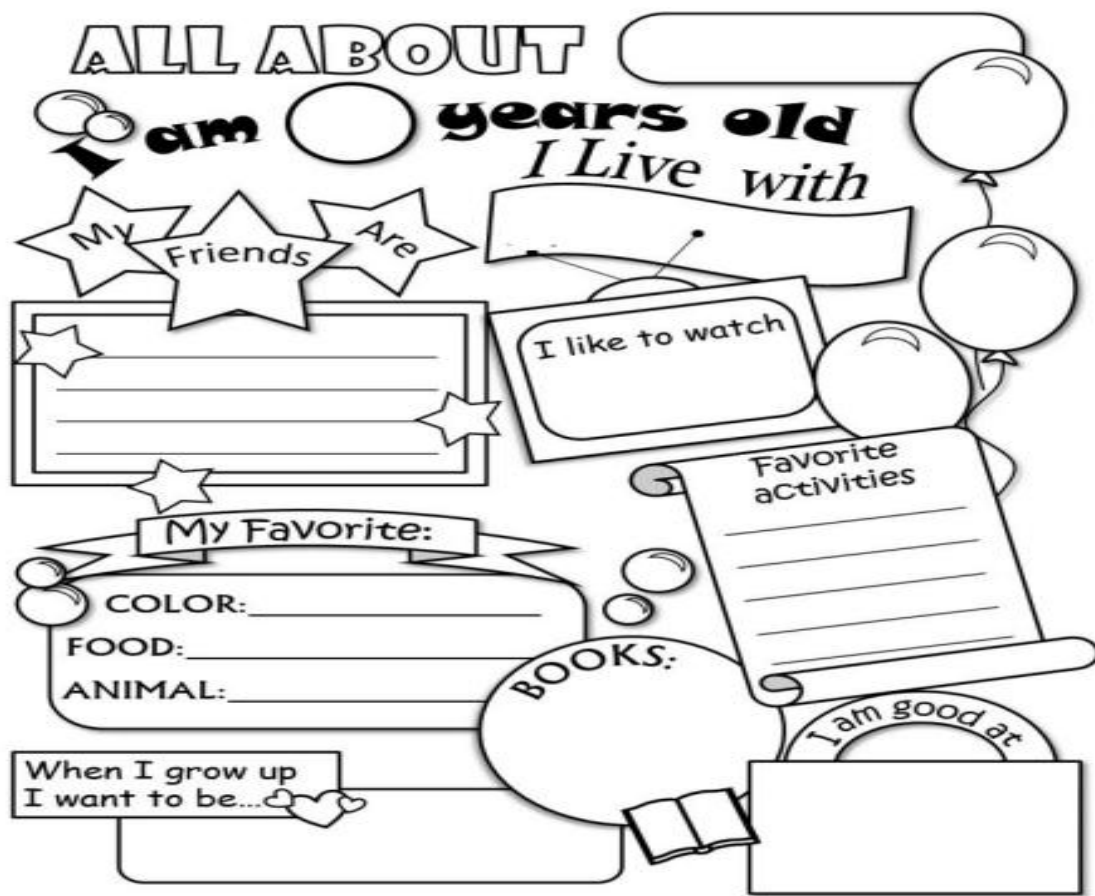 ALL ABOUT
I am years old
I Live with
My Friends Are
I like to watch
Favorite
activities
My Favorite:
COLOR:
FOOD:
ANIMAL:
BOOKS:
I am good at
When I grow up
I want to be...